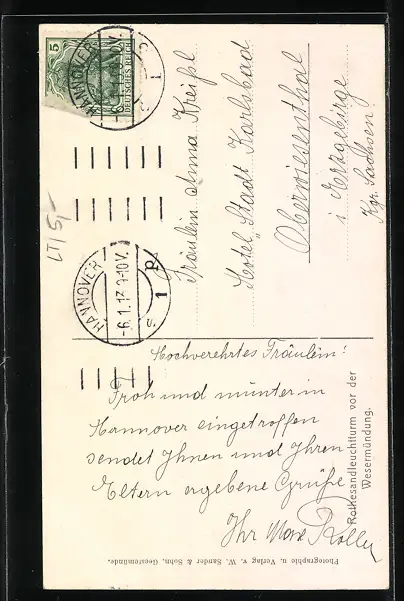 5
DEUTSCHES REICH
HANNOVER
-6.1.13.9-10V.
* 1 p
s
HANNOVER
-6.1.13.9-10V.
* 1 p
s
LT/5,-
Fräulein Anna Kreißl
Hotel „Stadt Karlsbad
Oberwiesenthal
i Erzgebirge
Kgr. Sachsen!
Hochverehrtes Fräulein!
Froh und munter in
Hannover eingetroffen
sendet Ihnen und Ihren
Eltern ergebene Grüße
Ihr Max
Rothesandleuchtturm vor der
Wesermündung.
Photographie u. Verlag v. W. Sander & Sohn, Geestemünde.